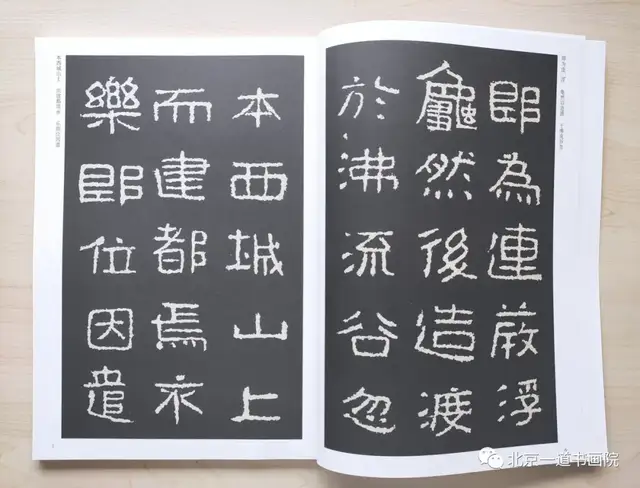 即為連葭浮
龜然後造渡
於沸流谷忽
本西城山上
而建都焉永
樂即位因遣
北京一道书画院